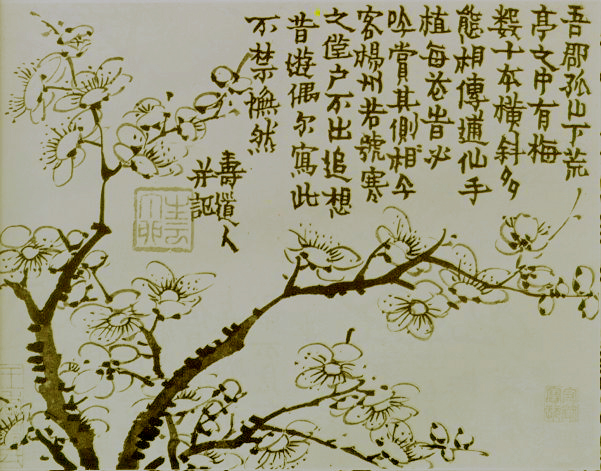 吾郡孤山下荒
亭之中有梅
數十本橫斜多
態相傳逋仙手
植每花必
吟賞其側今
客楊州若號寒
之戶不出追想
昔遊偶尔寫此
不禁憮然
壽道人
并記